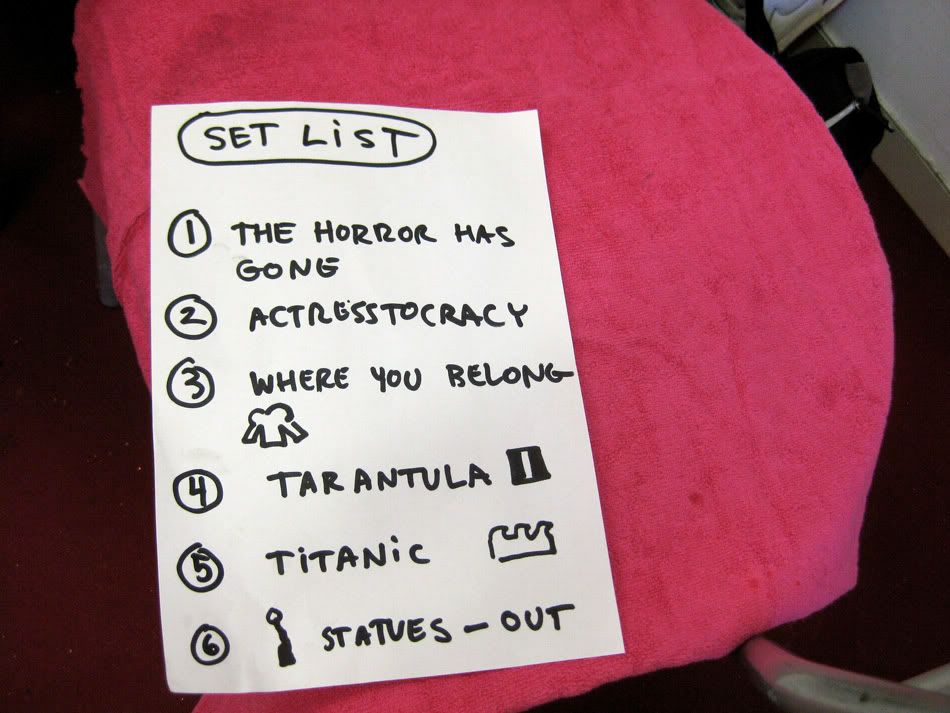 SET LiST
1 THE HORROR HAS
GONE
2 ACTRESSTOCRACY
3 WHERE YOU BELONG
4 TARANTULA
5 TiTANiC
6 STATUES - OUT